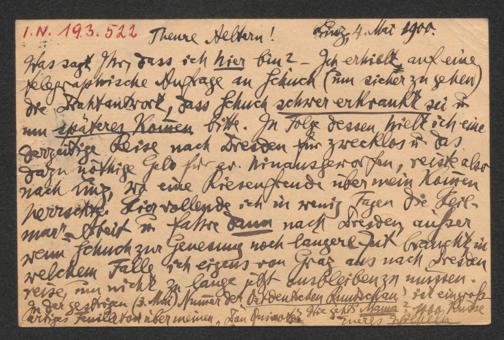 I.N. 193.522
Theure Aeltern! Linz, 4. Mai 1900.
Was sagt Ihr, dass ich hier bin? – Ich erhielt auf eine
telegraphische Anfrage an Schuch (um sicher zu gehen)
die Drahtantwort, dass Schuch schwer erkrankt sei u.
um späteres Kommen bitte. In Folge dessen hielt ich eine
derzeitige Reise nach Dresden für zwecklos u. das
dazu nöthige Geld für hinausgeworfen, reiste also
nach Linz, wo eine Riesenfreude über mein Kommen
herrschte. Hier vollende ich in wenig Tagen die
Arbeit u. fahre dann nach Dresden, ausser
wenn Schuch zur Genesung noch längere Zeit braucht, in
welchem Falle ich eigens von Graz aus nach Dresden
reise, um nicht zu lange jetzt ausbleiben zu müssen.
In der gestrigen (3. Mai) Nummer der Ostdeutschen Rundschau ist ein gross-
artiges Feuilleton über meinen „Don Quixote". Wie geht's Mama? 1000 Küsse
Eueres Wilhelm